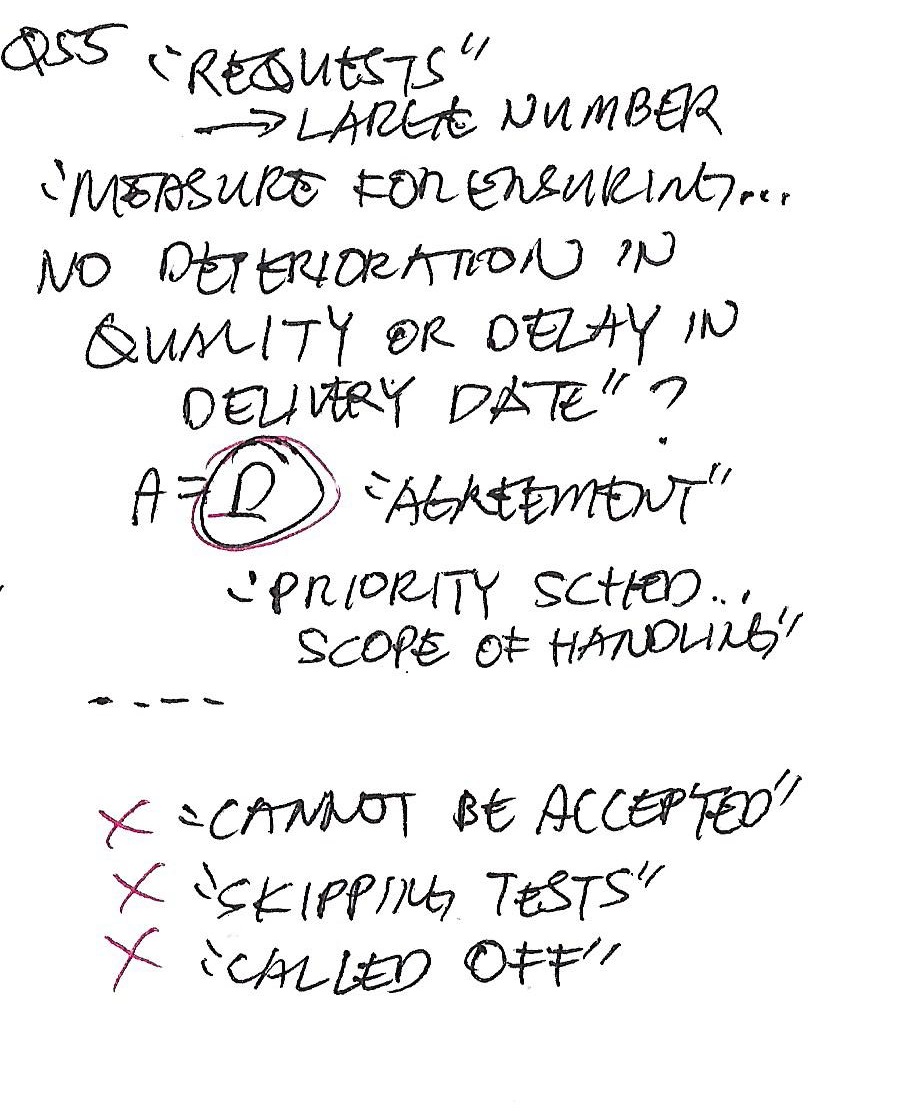 Q55 "REQUESTS"
→ LARGE NUMBER
"MEASURE FOR ENSURING...
NO DETERIORATION IN
QUALITY OR DELAY IN
DELIVERY DATE"?
A = D "AGREEMENT"
"PRIORITY SCHED...
SCOPE OF HANDLING"
----
X "CANNOT BE ACCEPTED"
X "SKIPPING TESTS"
X "CALLED OFF"